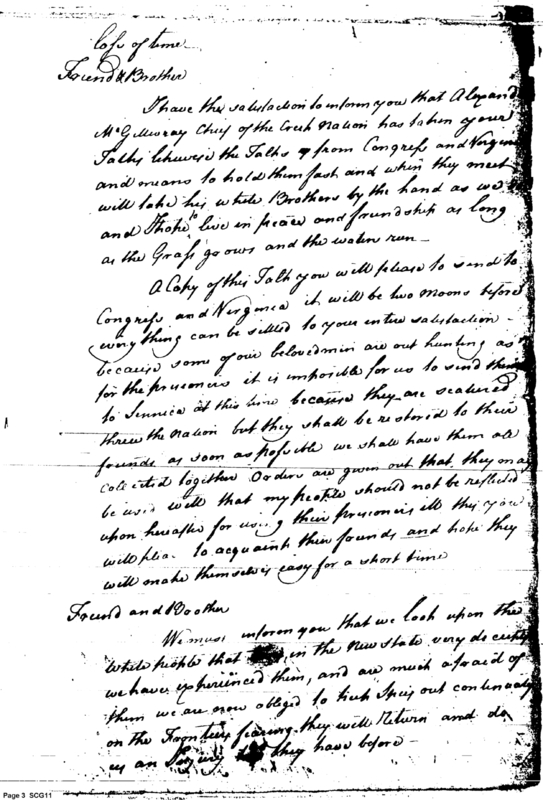 loss of time
Friend & Brother
I have the satisfaction to inform you that Alexand
McGillivray Chief of the Creek Nation has taken your
Talks likewise the Talks from Congress and Virginia
and means to hold them fast and when they meet
will take his white Brothers by the hand as we
and I hope to live in peace and friendship as long
as the Grass grows and the water run
A Copy of this Talk you will please to send to
Congress and Verginia it will be two moons before
everything can be settled to your entire satisfaction
because some of our beloved men are out hunting as
for the prisoners it is imposible for us to send them
to at this time because they are scatered
threw the nation but they shall be restored to their
friends as soon as possible we shall have them all
colected together Orders are given out that they may
be used well that my people should not be reflected
upon hereafter for using their prisoners ill this you
will plea to acquaint their friends and hope they
will make themselves easy for a short time
Friend and Brother
We must inform you that we look upon the
white people that in the New State very deceitful
we have experienced them, and are much afraid of
them we are now obliged to Spies out continually
on the Frontiers fearing they will Return and do
us an Injury they have before
Page 3 SCG11